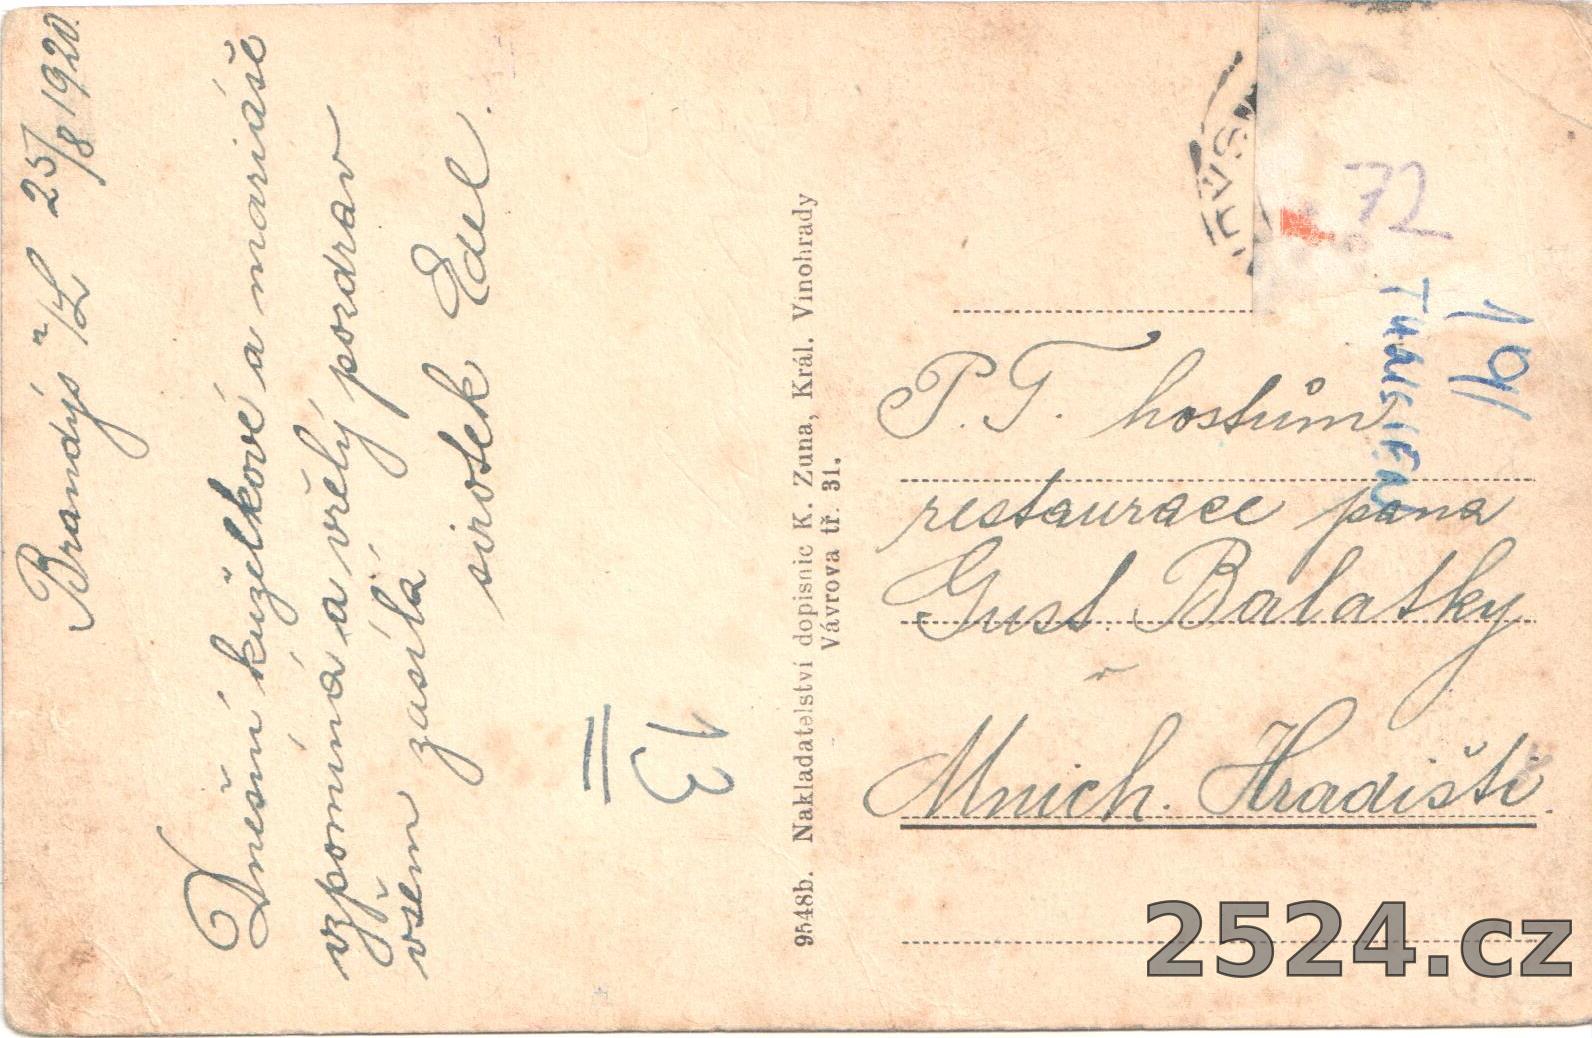 Brandýs n/L 25/8 1920.
Dnešní kuželkové a mariáše
vzpomíná a vřelý pozdrav
všem zasílá
sirotek Edel.
13
9548b. Nakladatelství dopisnic K. Zuna, Král. Vinohrady
Vávrova tř. 31.
72
19/
P. T. hostům
restaurace pana
Gust. Balatky
v
Mnich. Hradišti.
2524.cz